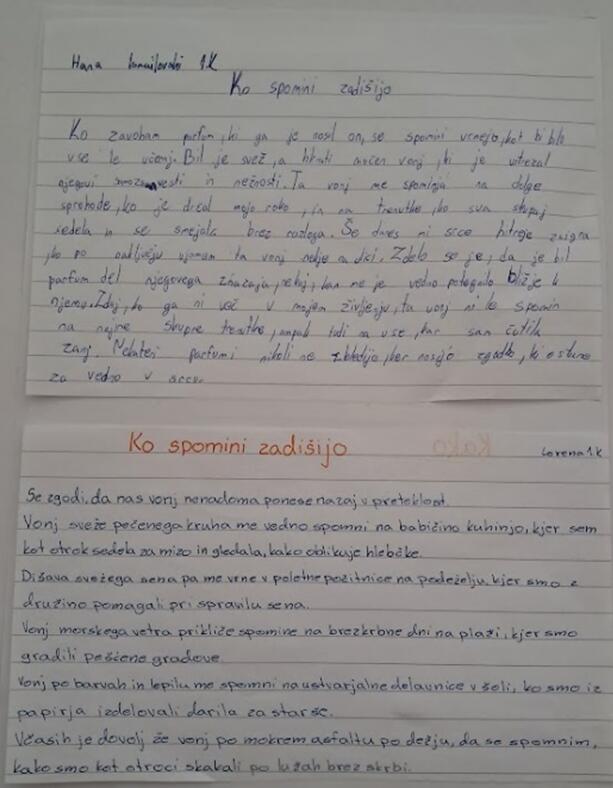 Hana 1.K
Ko spomini zadišijo
Ko zavoham parfum, ki ga je nosil on, se spomini vrnejo, kot bi bilo
vse le včeraj. Bil je svež, a hkrati močen vonj, ki je
njegovi in nežnosti. Ta vonj me spominja na dolge
sprehode, ko je držal mojo roko, in na trenutke, ko sva skupaj
sedela in se smejala brez razloga. Še danes mi srce hitreje zaigra
ko po ta vonj nekje na ulici. Zdelo se je, da je bil
parfum del njegovega značaja, nekaj, kar me je vedno potegnilo bližje k
njemu. Zdaj, ko ga ni več v mojem življenju, ta vonj ni le spomin
na najine skupne trenutke, ampak tudi na vse, kar sem čutila
zanj. Nekateri parfumi nikoli ne zbledijo, ker nosijo zgodbo, ki ostane
za vedno v srcu.
Ko spomini zadišijo
Kako
Lorena 1.K
Se zgodi, da nas vonj nenadoma ponese nazaj v preteklost.
Vonj sveže pečenega kruha me vedno spomni na babičino kuhinjo, kjer sem
kot otrok sedela za mizo in gledala, kako oblikuje hlebčke.
Dišava svežega sena pa me vrne v poletne počitnice na podeželju, kjer smo z
družino pomagali pri spravilu sena.
Vonj morskega vetra prikliče spomine na brezkrbne dni na plaži, kjer smo
gradili peščene gradove.
Vonj po barvah in lepilu me spomni na ustvarjalne delavnice v šoli, ko smo iz
papirja izdelovali darila za starše.
Včasih je dovolj že vonj po mokrem asfaltu po dežju, da se spomnim,
kako smo kot otroci skakali po lužah brez skrbi.